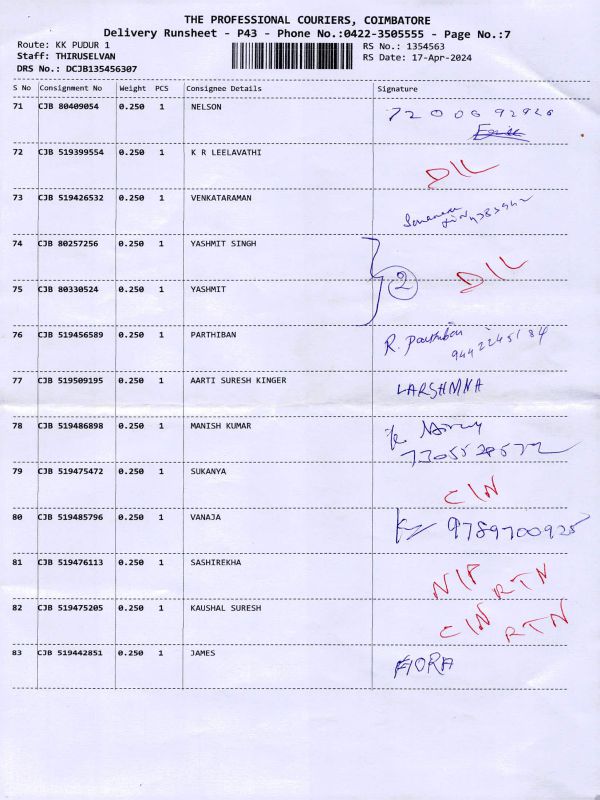 THE PROFESSIONAL COURIERS, COIMBATORE
Delivery Runsheet - P43 - Phone No.:0422-3505555 - Page No.:7
Route: KK PUDUR 1 RS No.: 1354563
Staff: THIRUSELVAN RS Date: 17-Apr-2024
DRS No.: DCJB135456307
S No Consignment No Weight PCS Consignee Details Signature
71 CJB 80409054 0.250 1 NELSON
72 CJB 519399554 0.250 1 K R LEELAVATHI DIL
73 CJB 519426532 0.250 1 VENKATARAMAN
74 CJB 80257256 0.250 1 YASHMIT SINGH
2 DIL
75 CJB 80330524 0.250 1 YASHMIT
76 CJB 519456589 0.250 1 PARTHIBAN R. Parthiban
9442245184
77 CJB 519509195 0.250 1 AARTI SURESH KINGER LARSHMNA
78 CJB 519486898 0.250 1 MANISH KUMAR
79 CJB 519475472 0.250 1 SUKANYA CIN
80 CJB 519485796 0.250 1 VANAJA 9789700925
81 CJB 519476113 0.250 1 SASHIREKHA NIP RTN
82 CJB 519475205 0.250 1 KAUSHAL SURESH CIN RTN
83 CJB 519442851 0.250 1 JAMES FIORA